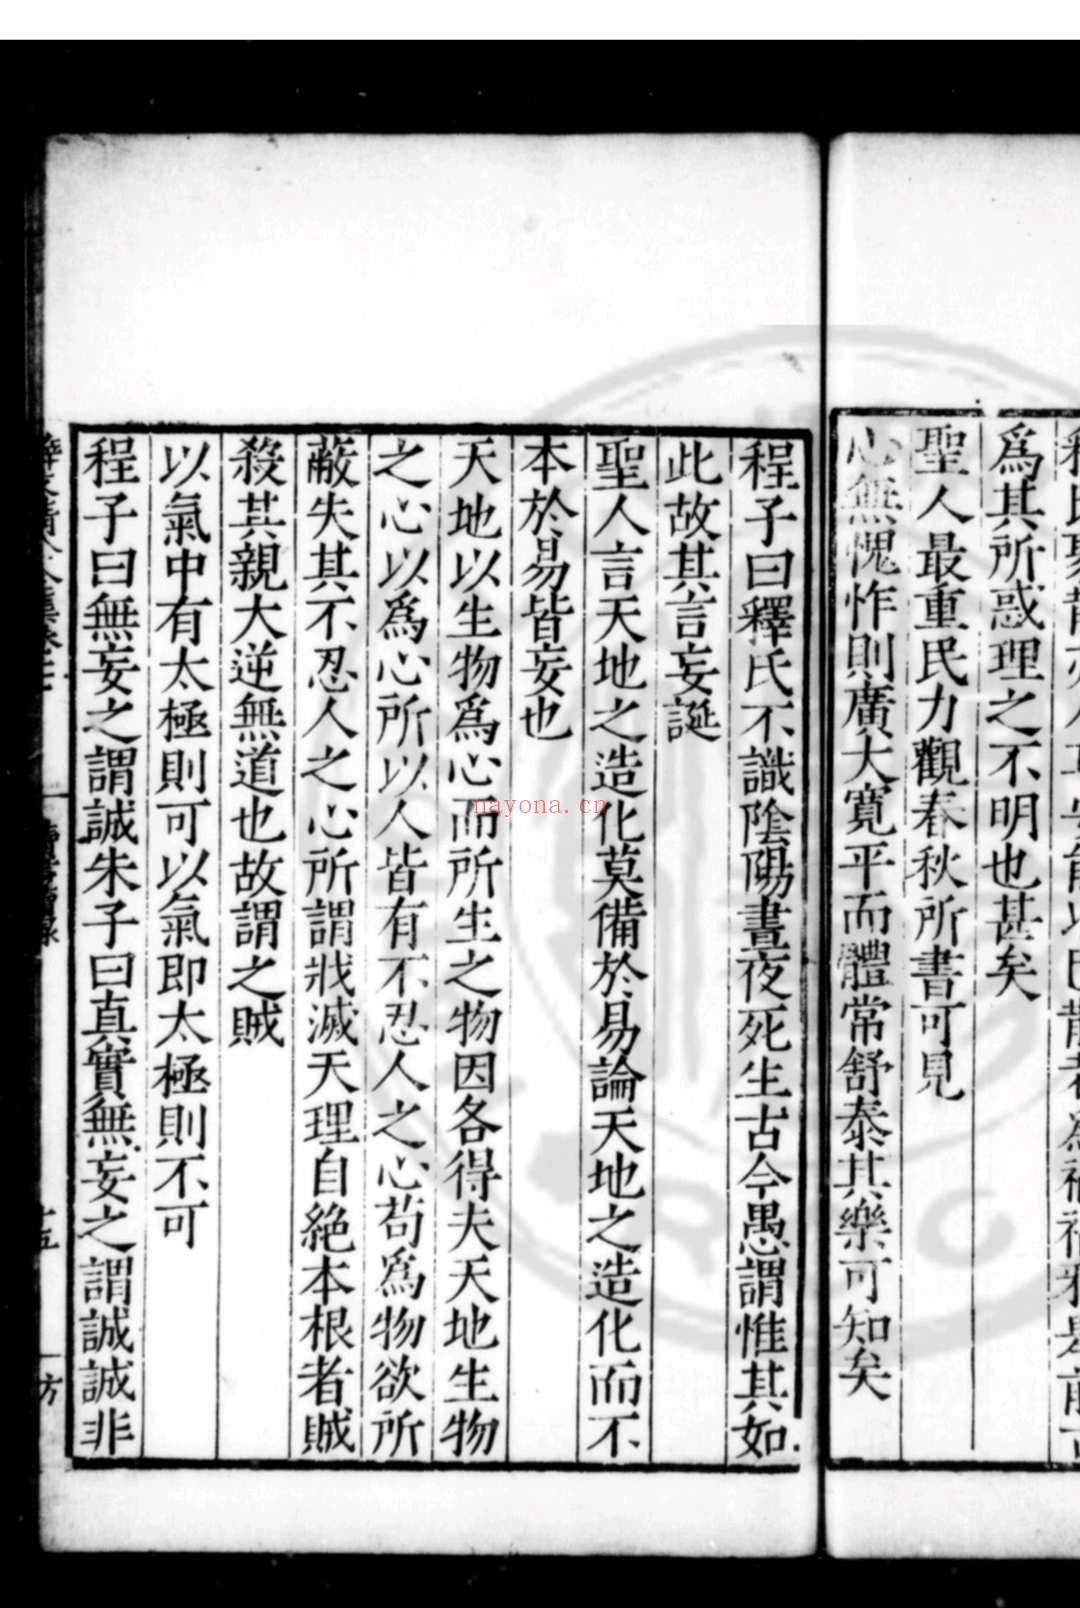 爲其所惑理之不明也甚矣
聖人最重民力觀春秋所書可見
心無愧怍則廣大寬平而體常舒泰其樂可知矣
程子曰釋氏不識陰陽晝夜死生古今愚謂惟其如
此故其言妄誕
聖人言天地之造化莫備於易論天地之造化而不
本於易皆妄也
天地以生物爲心而所生之物因各得夫天地生物
之心以爲心所以人皆有不忍人之心苟爲物欲所
蔽失其不忍人之心所謂戕滅天理自絶本根者賊
殺其親大逆無道也故謂之賊
以氣中有太極則可以氣即太極則不可
程子曰無妄之謂誠朱子曰真實無妄之謂誠誠非
nayona.cn